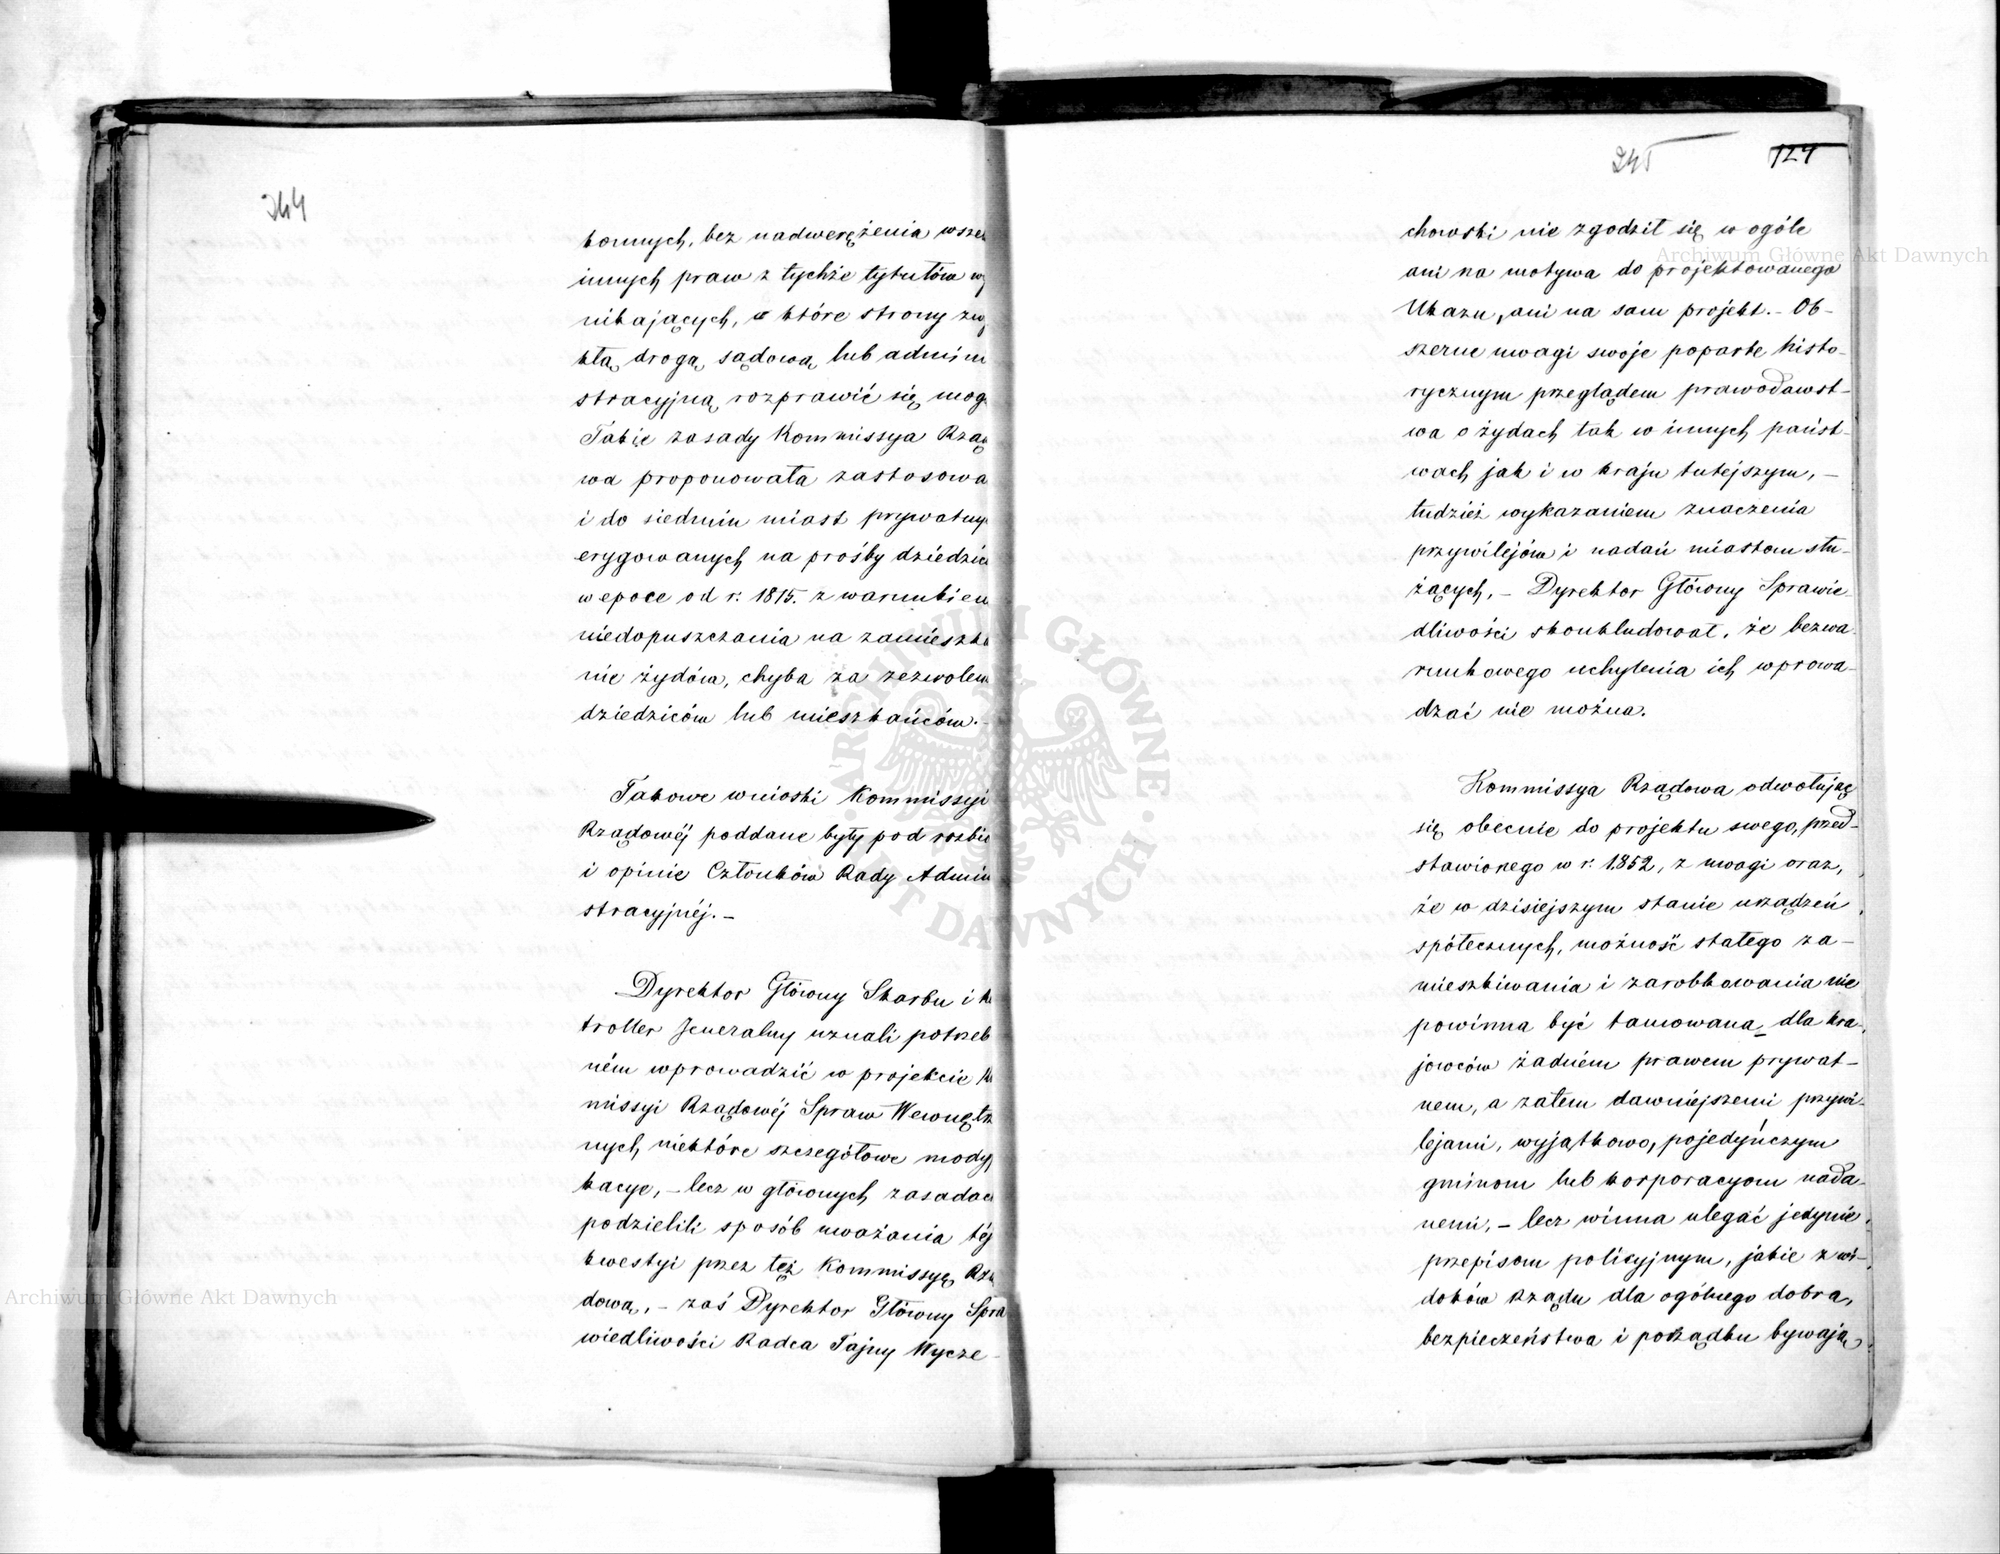 244
konnych, bez nadwerężenia wszel
innych praw z tychże tytułów wy
nikających, o które strony zwy
kłą drogą sądową lub admini
stracyjną rozprawić się mog
Takie zasady Kommissya Rząd
wa proponowała zastosowa
i do siedmiu miast prywatny
erygowanych na prośby dziedzic
w epoce od r: 1815. z warunkiem
niedopuszczania na zamieszka
nie żydów, chyba za zezwolen
dziedziców lub mieszkańców.–
Takowe wnioski Kommissyi
Rządowéj poddane były pod rozbió
i opinie Członków Rady Admin
stracyjnéj.–
Dyrektor Główny Skarbu i Ko
troller Jeneralny uznali potrzeb
ném wprowadzić w projekcie Ko
missyi Rządowéj Spraw Wewnętrz
nych niektóre szczegółowe mody
kacye, – lecz w głównych zasadac
podzielili sposób uważania téj
kwestyi przez też Kommissyę Rzą
dową, – zaś Dyrektor Główny Spra
wiedliwości Radca Tajny Wycze–
245
124
chowski nie zgodził się w ogóle
ani na motywa do projektowanego
Ukazu, ani na sam projekt.– Ob–
szerne uwagi swoje poparte histo–
rycznym przeglądem prawodawst–
wa o żydach tak w innych państ–
wach jak i w kraju tutejszym, –
tudzież wykazaniem znaczenia
przywilejów i nadań miastom słu–
żących, – Dyrektor Główny Sprawie–
dliwości skonkludował, że bezwa–
runkowego uchylenia ich wprowa–
dzać nie można.
Kommissya Rządowa odwołując
się obecnie do projektu swego, przed–
stawionego w r: 1852, z uwagi oraz,
że w dzisiejszym stanie urządzeń
spółecznych, możność stałego za–
mieszkiwania i zarobkowania nie
powinna być tamowana dla kra–
jowców żadném prawem prywat–
nem, a zatem dawniejszemi przywi–
lejami, wyjątkowo, pojedyńczym
gminom lub korporacyom nada–
nemi, – lecz winna ulegać jedynie
przepisom policyjnym, jakie z wi–
doków Rządu dla ogólnego dobra,
bezpieczeństwa i porządku bywają
Archiwum Główne Akt Dawnych
Archiwum Główne Akt Dawnych
ARCHIWUM GŁÓWNE AKT DAWNYCH